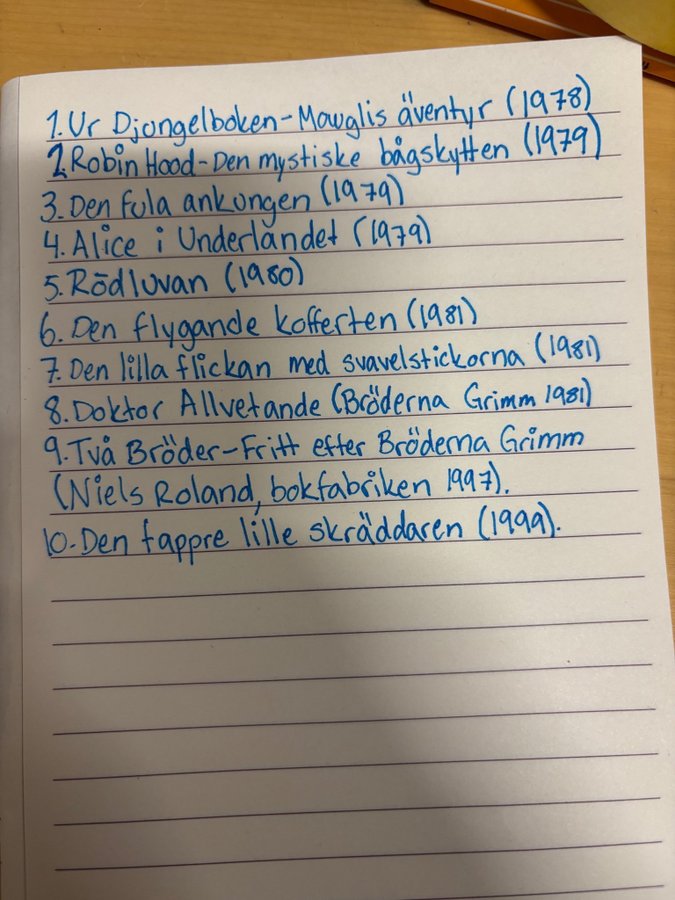 1. Ur Djongelboken - Mowglis äventyr (1978)
2. Robin Hood - Den mystiske bågskytten (1979)
3. Den fula ankungen (1979)
4. Alice i Underlandet (1979)
5. Rödluvan (1980)
6. Den flygande kofferten (1981)
7. Den lilla flickan med svavelstickorna (1981)
8. Doktor Allvetande (Bröderna Grimm 1981)
9. Två Bröder - Fritt efter Bröderna Grimm
(Niels Roland, bokfabriken 1997).
10. Den tappre lille skräddaren (1999).